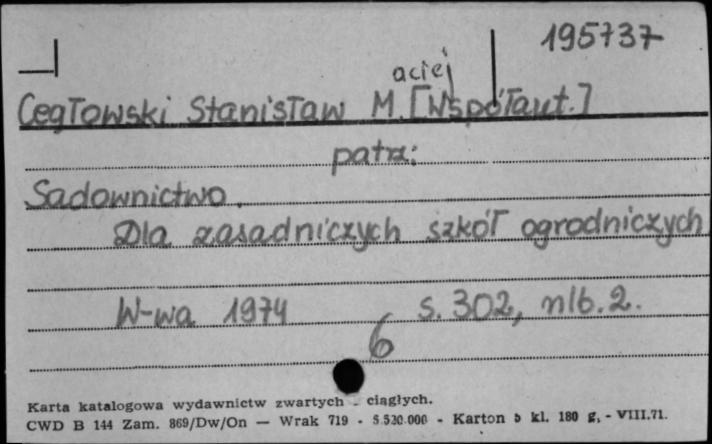 195737
aciej
Cegłowski Stanisław M. [Współaut.]
patrz:
Sadownictwo.
Dla zasadniczych szkół ogrodniczych
W-wa 1974 s. 302, nlb. 2.
6
Karta katalogowa wydawnictw zwartych - ciągłych.
CWD B 144 Zam. 869/Dw/On — Wrak 719 - 5.520.000 - Karton b kl. 180 g, - VIII.71.